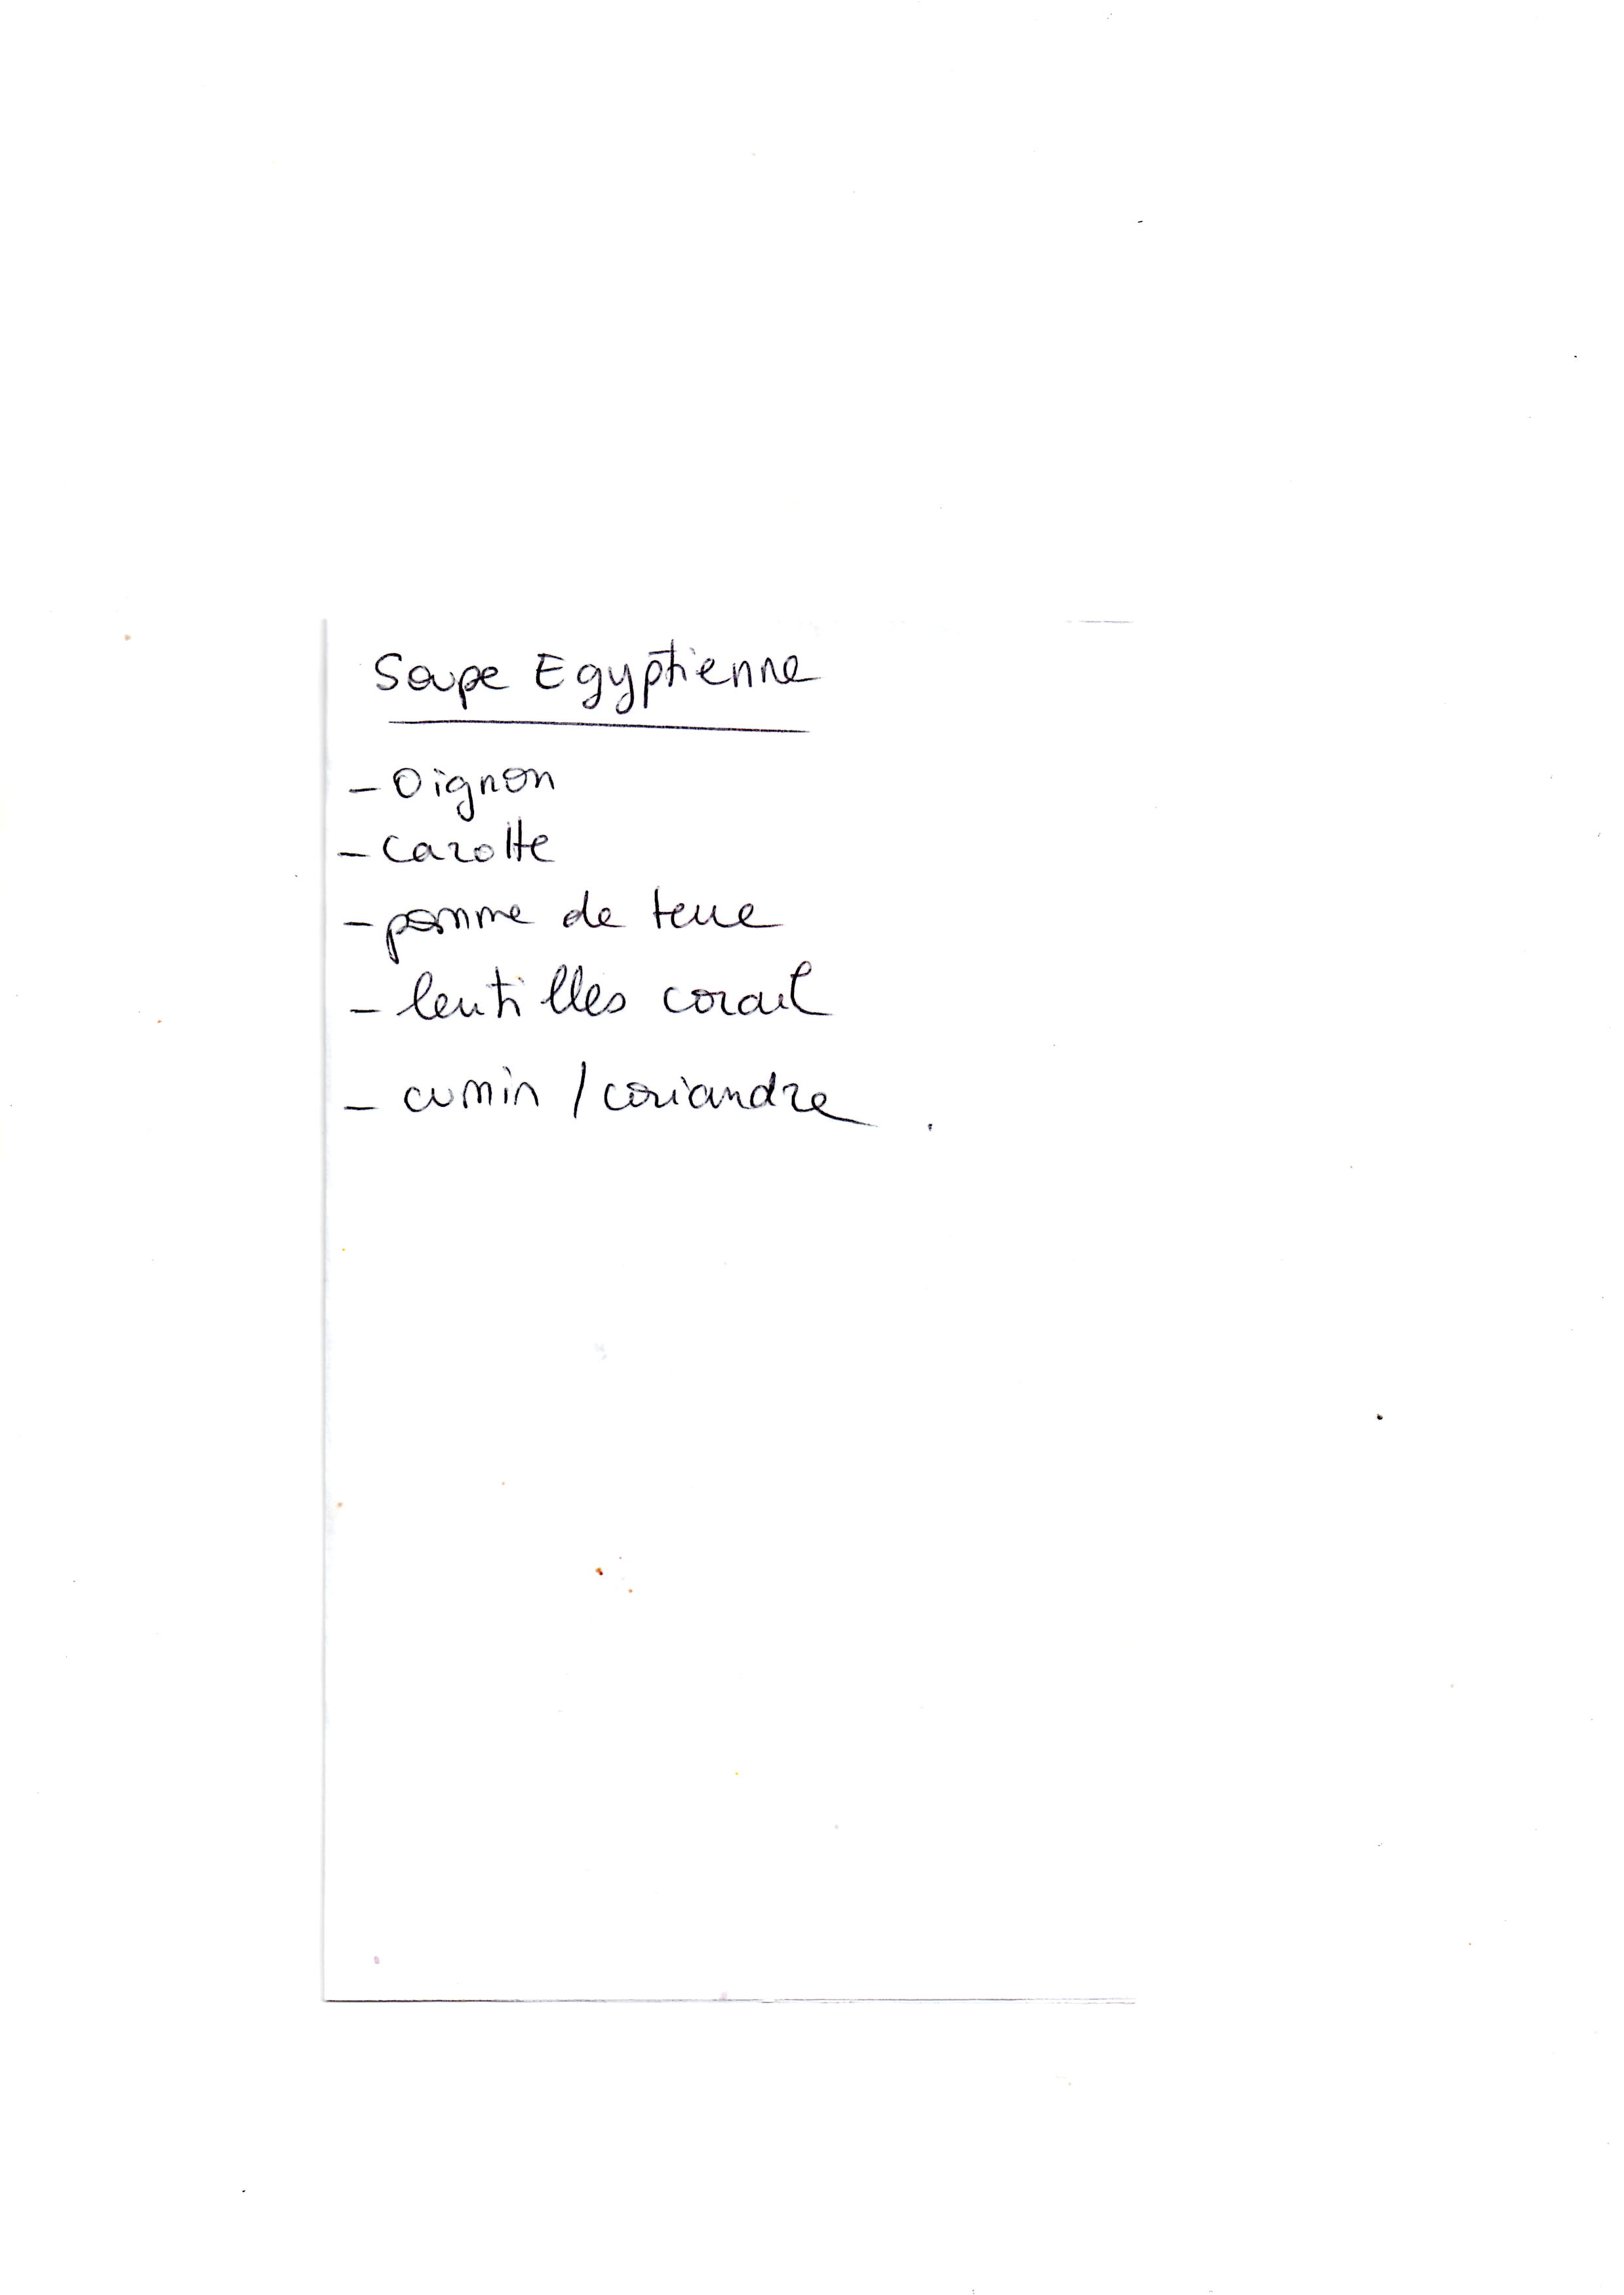 Soupe Egyptienne
- Oignon
- carotte
- pomme de terre
- lentilles corail
- cumin / coriandre .